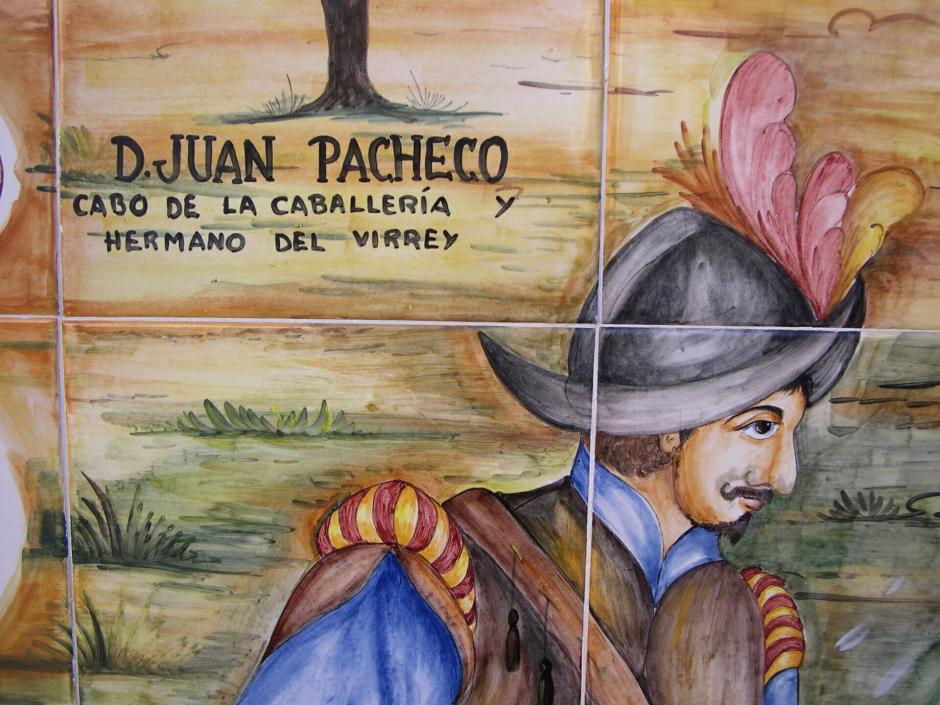 D. JUAN PACHECO
CABO DE LA CABALLERÍA Y
HERMANO DEL VIRREY